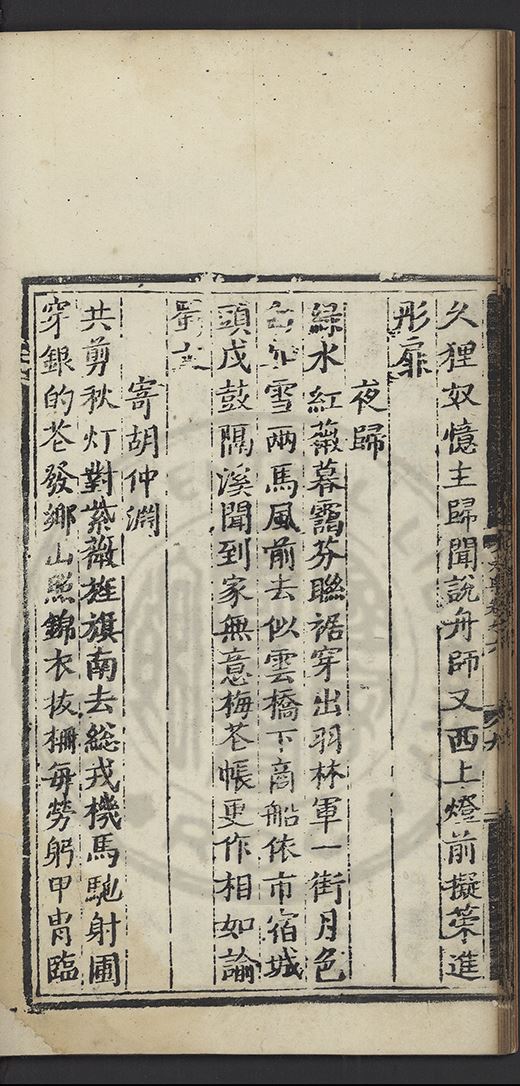 久狸奴憶主歸聞說舟師又西上燈前擬策進
彤扉
夜歸
綠水紅薇暮靄芬聯裾穿出羽林軍一街月色
白如雪兩馬風前去似雲橋下商船依市宿城
頭戍鼓隔溪聞到家無意梅花帳更作相如諭
蜀文
寄胡仲淵
共剪秋灯對紫薇旌旗南去総戎機馬馳射圃
穿銀的苍發鄉山照錦衣拔柵每勞躬甲冑臨